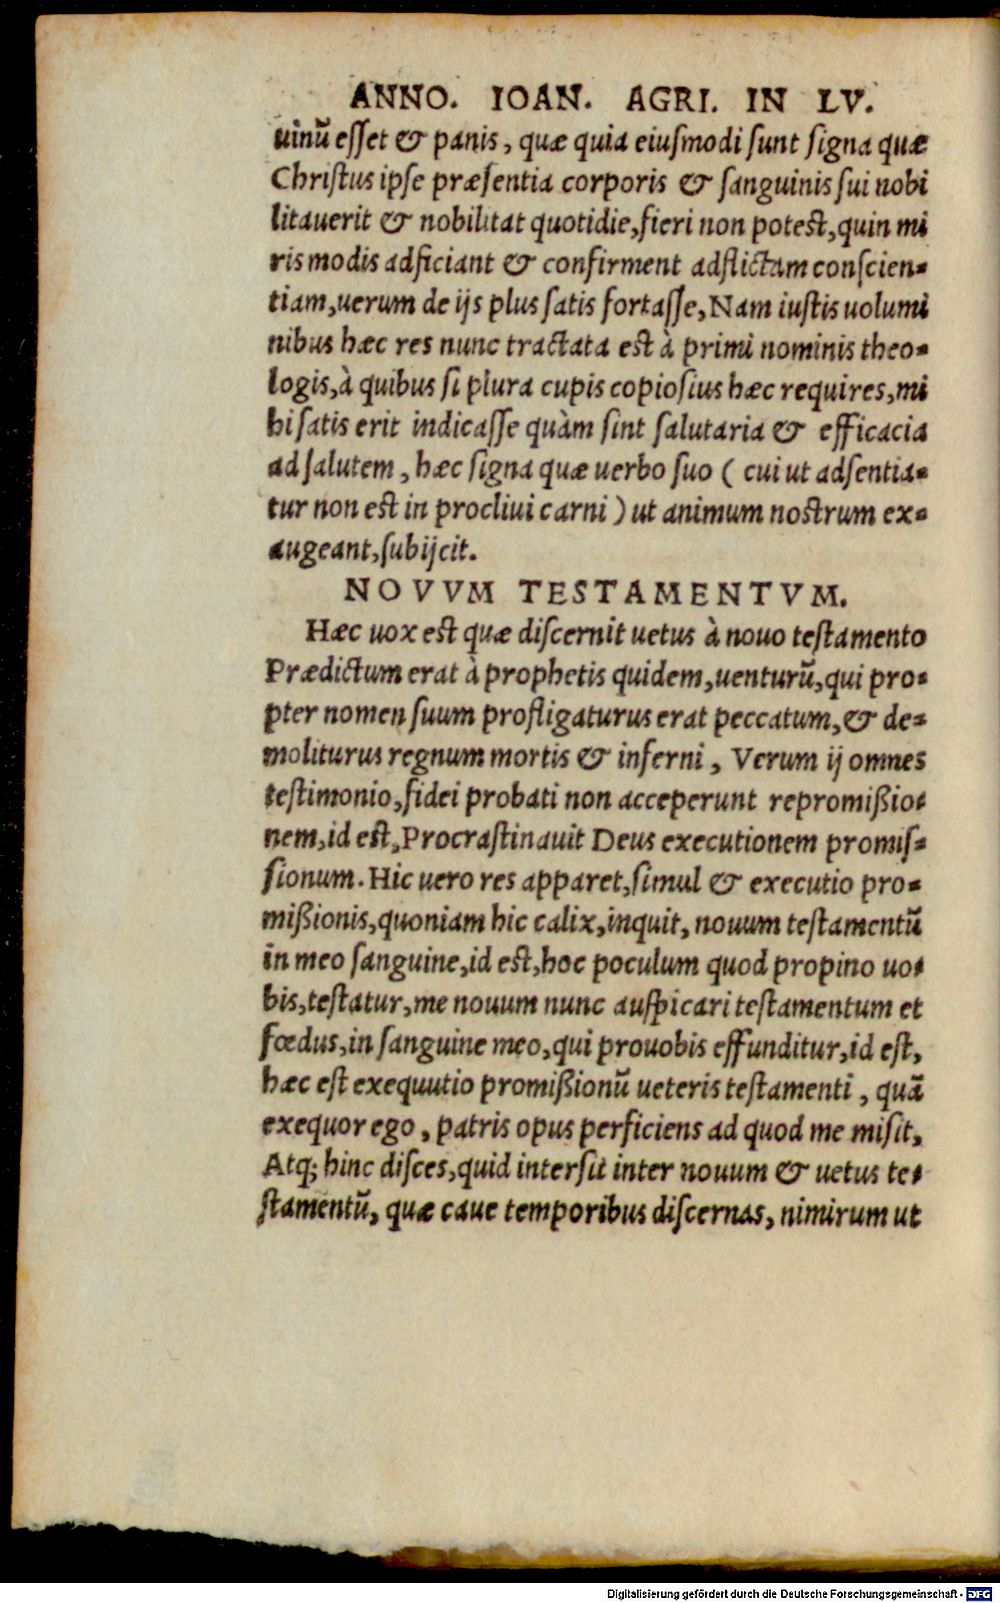 ANNO. IOAN. AGRI. IN LV.
uinū esſet & panis, quæ quia eiuſmodi ſunt ſigna quæ
Chriſtus ipſe præſentia corporis & ſanguinis ſui nobi
litauerit & nobilitat quotidie, fieri non poteſt, quin mi
ris modis adficiant & confirment adflictam conſcien-
tiam, uerum de ijs plus ſatis fortaſſe, Nam iuſtis uolumi
nibus hæc res nunc tractata eſt à primi nominis theo-
logis, à quibus ſi plura cupis copioſius hæc requires, mi
hi ſatis erit indicaſſe quàm ſint ſalutaria & efficacia
ad ſalutem, hæc ſigna quæ uerbo ſuo ( cui ut adſentia-
tur non eſt in procliui carni ) ut animum noſtrum ex-
augeant, ſubijcit.
NOVVM TESTAMENTVM.
Hæc uox eſt quæ diſcernit uetus à nouo teſtamento
Prædictum erat à prophetis quidem, uenturū, qui pro-
pter nomen ſuum profligaturus erat peccatum, & de-
moliturus regnum mortis & inferni, Verum ij omnes
teſtimonio, fidei probati non acceperunt repromißio-
nem, id eſt, Procraſtinauit Deus executionem promiſ-
ſionum. Hic uero res apparet, ſimul & executio pro-
mißionis, quoniam hic calix, inquit, nouum teſtamentū
in meo ſanguine, id eſt, hoc poculum quod propino uo-
bis, teſtatur, me nouum nunc auſpicari teſtamentum et
fœdus, in ſanguine meo, qui prouobis effunditur, id eſt,
hæc eſt exequutio promißionū ueteris teſtamenti, quā
exequor ego, patris opus perficiens ad quod me miſit,
Atq; hinc diſces, quid interſit inter nouum & uetus te-
ſtamentū, quæ caue temporibus diſcernas, nimirum ut
Digitalisierung gefördert durch die Deutsche Forschungsgemeinschaft - DFG